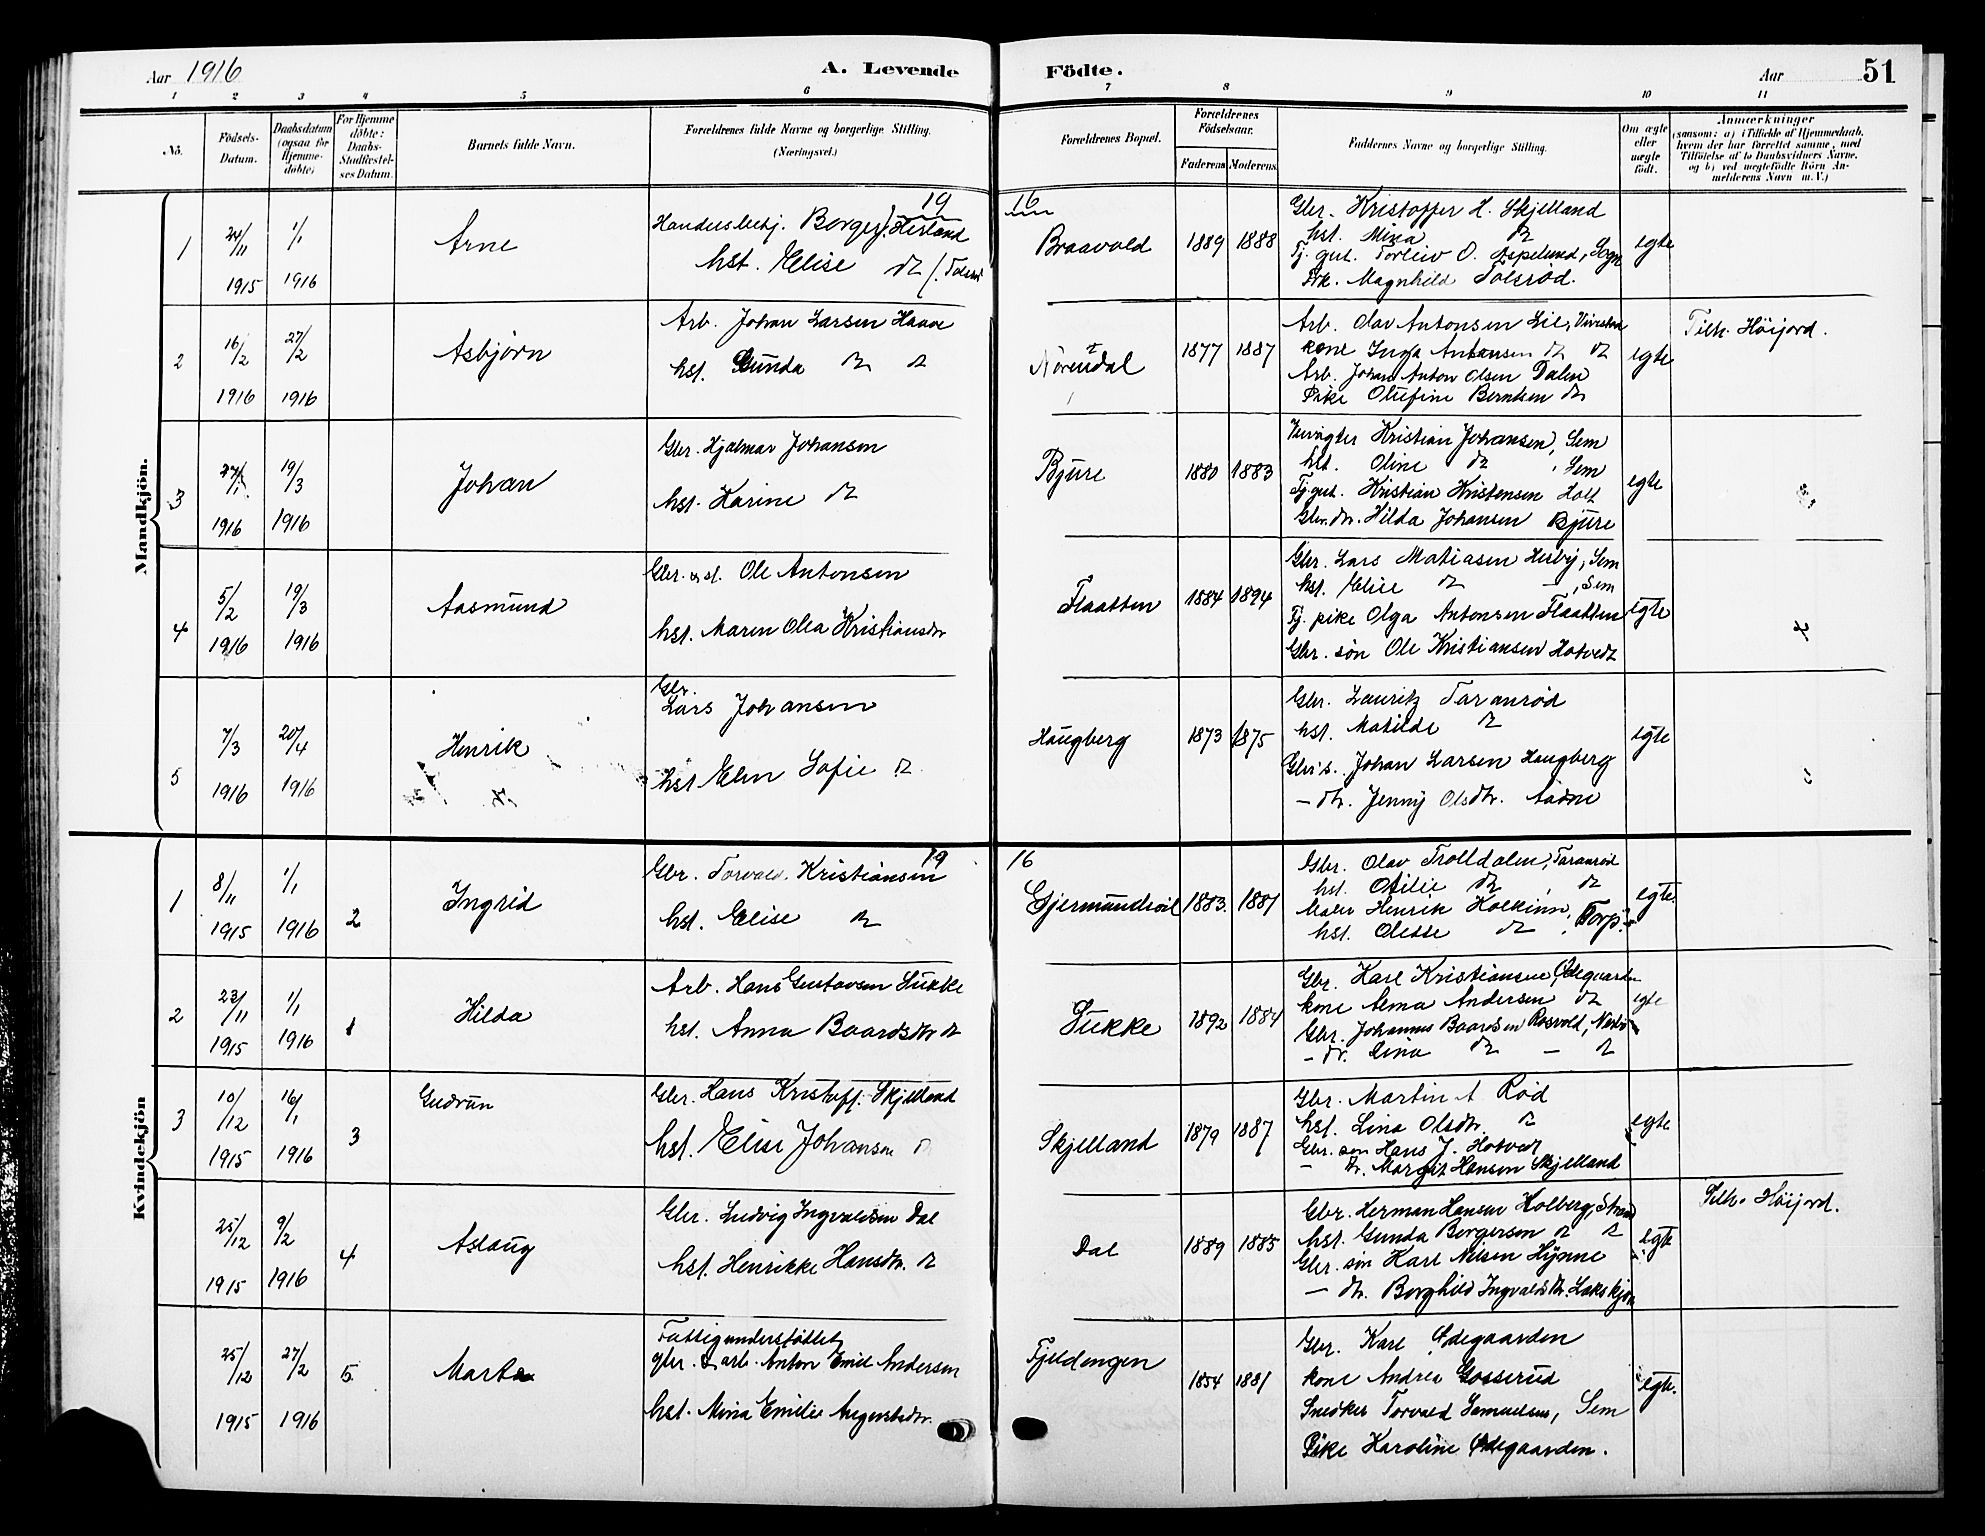 Aar 1916
A. Levende
Födte.
Aar
51
1 2 3 4 5 6 7 8 9 10 11
Nö.
Födsels-
Datum.
Daabsdatum
(ogsaa for
Hjemme-
döbte)
For Hjemme
döbte:
Daabs-
Stadfæstel-
ses Datum.
Barnets fulde Navn.
Forældrenes fulde Navne og borgerlige Stilling.
(Næringsvei.)
Forældrenes Bopæl.
Forældrenes
Födselsaar.
Faderens
Moderens
Faddernes Navne og borgerlige Stilling.
Om ægte
eller
uægte
födt.
Anmærkninger
(saasom: a) i Tilfælde af Hjemmedaab,
hvem der har forrettet samme, med
Tilföielse af to Daabsvidners Navne,
og b) ved uægtefödte Börn An-
melderens Navn m. V.)
Mandkjön.
19
16
1
24/11
1915
1/1
1916
Arne
Handelsbetj. Borger J. Hesland
hst. Elise do
Braavold
1889
1888
Gbr. Kristoffer H. Skjelland
hst. Mina do
Tj. gut. Torleiv O. Aspelund, Sogn
Frk. Magnhild Tolsrød.
egte
2
16/2
1916
27/2
1916
Asbjörn
Arb. Johan Larsen Haave
hst. Gunda do do
Norendal
1877
1887
Arb. Olav Antonsen Lie,
kone Inga Antonsen do do
Arb. Johan Anton Olsen Dalen
Pike Olufine Berntsen do
egte
Tilh. Höijord.
3
1916
19/3
1916
Johan
Gbr. Hjalmar Johansen
hst. Karine do
Bjüre
1880
1883
Kristian Johansen, Sem
hst. Oline do, Sem
Tj.gut. Kristian Kristensen Holt
Gbr.dtr. Hilda Johansen Bjüre
egte
4
5/2
1916
19/3
1916
Aasmünd
Gbr. Ole Antonsen
hst. Maren Olea Kristiansdtr
Flaatten
1884
1894
Gbr. Lars Matiasen Hesby, Sem
hst. Elise do —, Sem
Tj. pike Olga Antonsen Flaatten
Gbr. søn Ole Kristiansen Hotvedt
egte
5
7/3
1916
20/4
1916
Henrik
Gbr.
Lars Johansen
hst Elen Sofie do
Haugberg
1873
1875
Gbr. Lauritz Taranrød
hst. Matilde do
Gbr's. Johan Larsen Haugberg
— dtr. Jenny Olsdtr. Aadne
egte
Kvindekjön
19
16
1
8/11
1915
1/1
1916
2
Ingrid
Gbr. Torvald Kristiansen
hst. Elise do
Gjermundsröd
1883.
1881
Gbr. Olav Trolldalen, Taranrød
hst. Otilie do, do
Maler Henrik Holkinn,
hst. Olesse do, Torp.
egte.
2
23/11
1915
1/1
1916
1
Hilda
Arb. Hans Gustavsen Sukke
hst. Anna Baardsdtr do
Sukke
1892
1884
Gbr. Karl Kristiansen, Ødegaarden
kone Anna Andersen do
Gbr. Johannes Baardsen Rosvold,
— dtr. Lina do — do
egte
3
10/12
1915
16/1
1916
3
Gudrun
Gbr. Hans Kristoff. Skjelland
hst. Elise Johansen do
Skjelland
1879
1887
Gbr. Martin A Rød
hst. Lina Olsdtr. do
Gbr. søn Hans J. Hotvedt
— dtr. Margit Hansen Skjelland
egte
25/12
1915
9/2
1916
4
Aslaug
Gbr. Ludvig Ingvaldsen Dal
hst. Henrikke Hansdtr. do
Dal
1889
1885
Gbr. Herman Hansen Holberg,
hst. Gunda Borgersen do do
Gbr. søn Karl Nilsen Hynne
— dtr. Borghild Ingvaldsdtr.
egte
Tilh. Höijord.
25/12
1915
27/2
1916
5
Marta
Fattigunderstøttet
gbr. & arb. Anton Emil Andersen
hst. Mina Emilie Augustsdtr.
Fjeldengen
1854
1881
Gbr. Karl Ødegaarden
kone Andrea Gosserud
Snedker Torvald Samuelsen, Sem
Pike Karoline Ødegaarden.
egte.